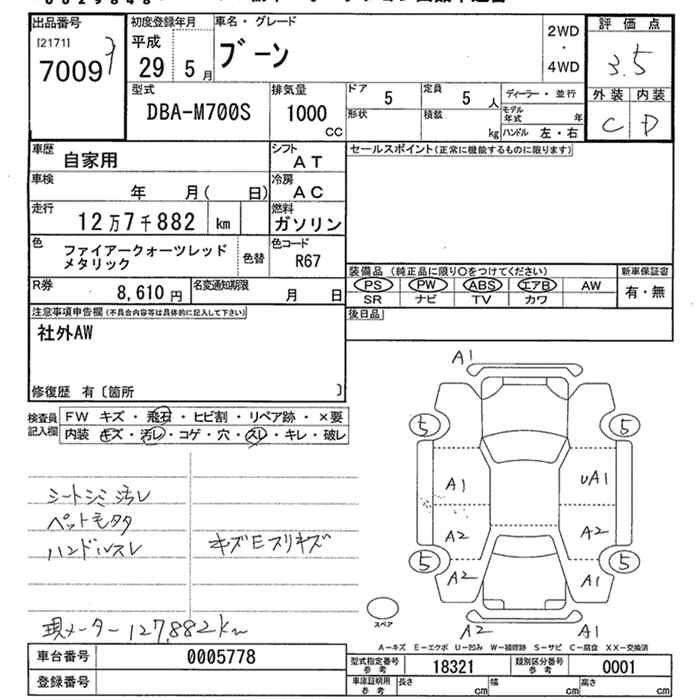 出品番号
[2171]
7009
初度登録年月
平成
29 5月
車名・グレード
ブーン
2WD
・
4WD
評価点
3.5
外装 内装
C D
型式
DBA-M700S
排気量
1000
CC
ドア
5
定員
5 人
ディーラー・並行
形状
積載
kg
モデル年式 年
ハンドル 左・右
車歴
自家用
シフト
AT
セールスポイント(正常に機能するものに限ります)
車検
年 月( 日)
冷房
AC
走行
12万7千882 km
燃料
ガソリン
色
ファイアークォーツレッド
メタリック
色替
色コード
R67
装備品(純正品に限り○をつけてください)
新車保証書
PS PW ABS エアB AW
有・無
SR ナビ TV カワ
R券
8,610円
名変通知期限
月 日
後日品
注意事項申告欄(不具合内容等は具体的に記入して下さい)
社外AW
修復歴 有〔箇所 〕
検査員
記入欄
FW キズ・飛石・ヒビ割・リペア跡・×要
内装 キズ・汚レ・コゲ・穴・スレ・キレ・破レ
シートシミ汚レ
ペットモタタ
ハンドルスレ
キズEスリキズ
現メーター127,882km
A1
5 5
A1 UA1
A2 A2
5 5
A2 A1
A2 A1
スペア
A-キズ E-エクボ U-凹み W-補修跡 S-サビ C-腐食 XX-交換済
車台番号
0005778
型式指定番号
参考
18321
類別区分番号
参考
0001
登録番号
車庫証明用
参考
長さ cm
幅 cm
高さ cm